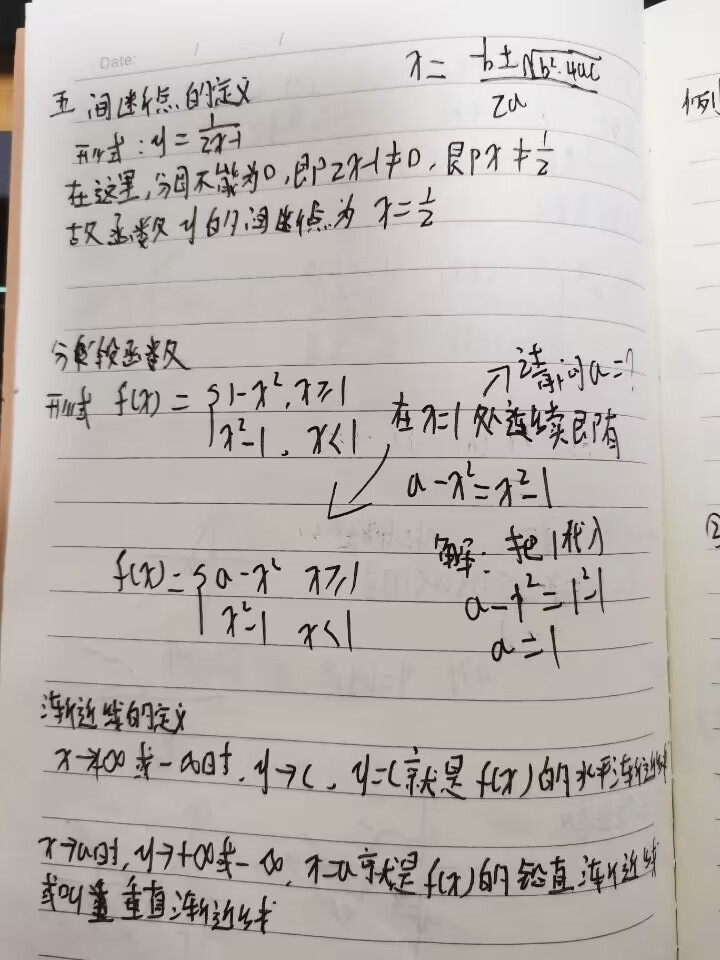 Date: / /
x = -b±√b²-4ac
2a
五 间断点的定义
形式: y = 1/2x-1
在这里,分母不能为0,即2x-1≠0,即x≠1/2
故函数y的间断点为 x=1/2
分段函数
形式 f(x) = { 1-x², x≥1
x²-1, x<1
→请问a=?
在x=1处连续即有
a-x²=x²-1
f(x)= { a-x² x≥1
x²-1 x<1
解: 把1代入
a-1²=1²-1
a=1
渐近线的定义
x→+∞或-∞时, y→c, y=c就是f(x)的水平渐近线
x→a时, y→+∞或-∞, x=a就是f(x)的铅直渐近线
或叫垂直渐近线
例
②